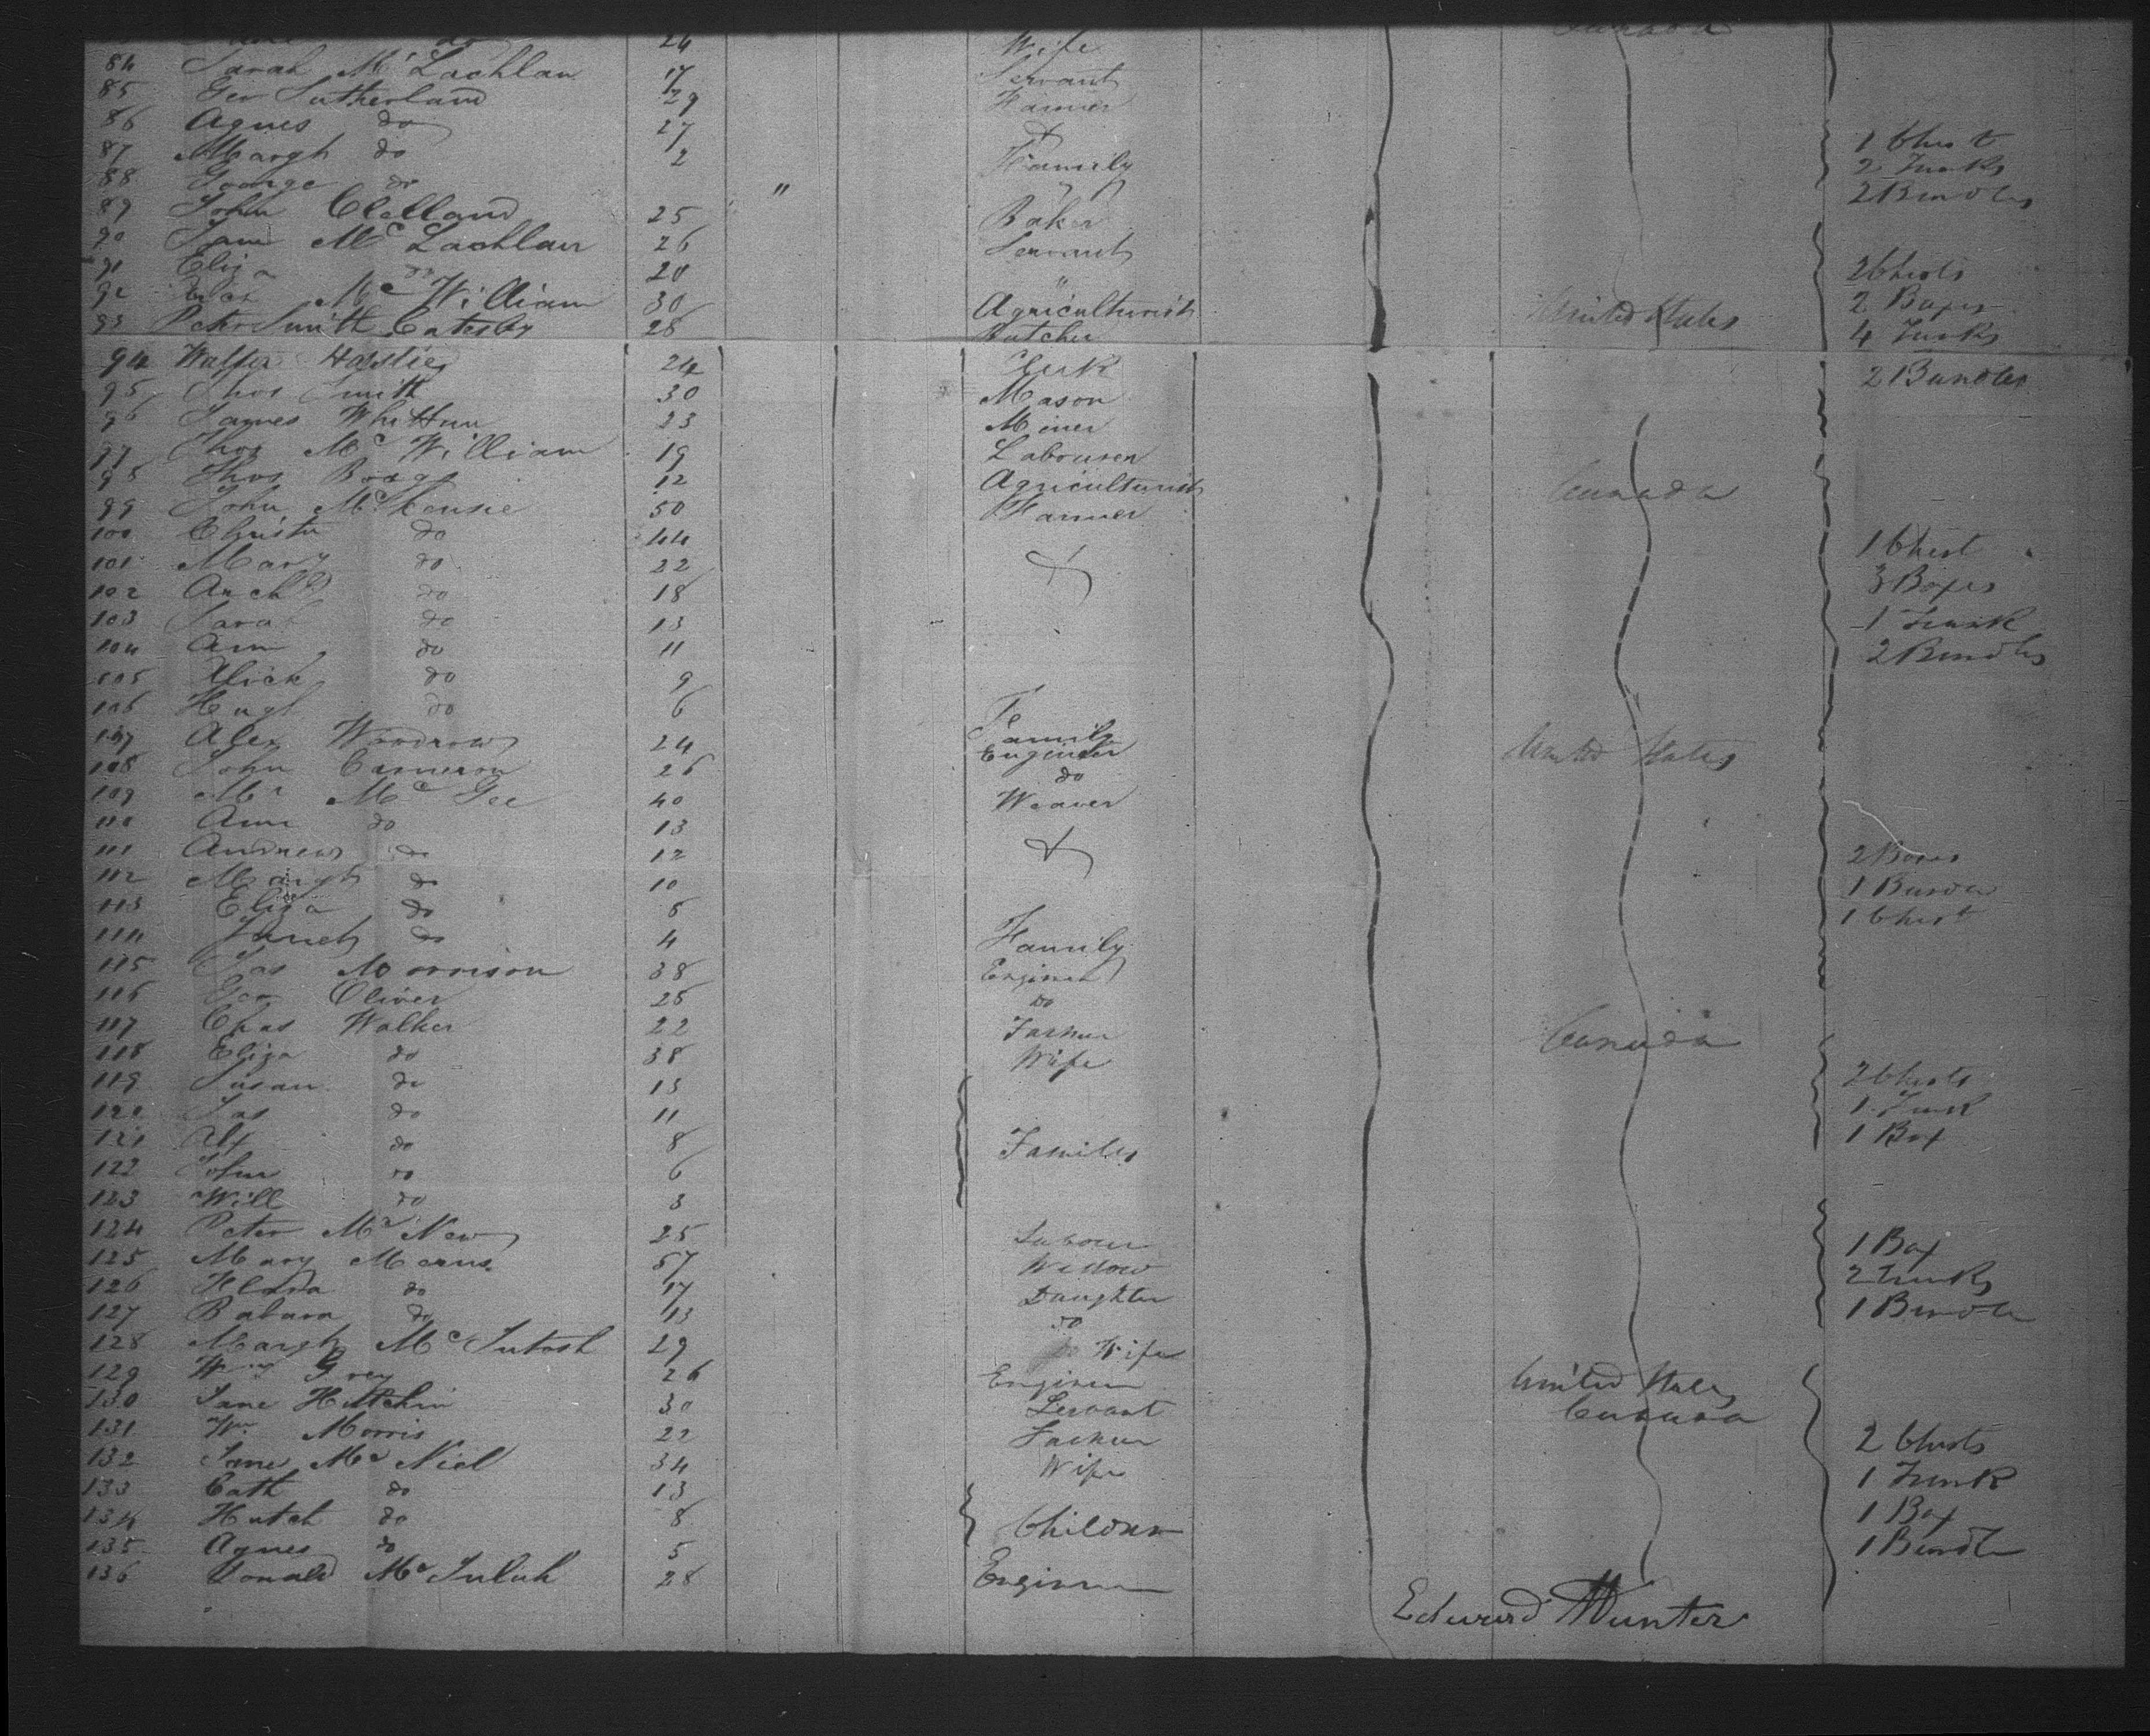 do 24 Wife Canada
84 Sarah McLachlan 17 Servant
85 Geo Sutherland 29 Farmer
86 Agnes do 27 &
87 Margh do 2 Family 1 Chest
88 George do " 2 Trunks
89 John Clelland 25 Baker 2 Bundles
90 Jane McLachlan 26 Servant
91 Eliza do 20 " 2 Chests
92 McWilliam 30 Agriculturist United States 2 Boxes
93 Peter Smith Catesby 28 Butcher 4 Trunks
94 Walter Hastie 24 Clerk 2 Bundles
95 Thos Smith 30 Mason
96 James Whittun 23 Miner
97 Thos McWilliam 19 Labourer
98 Thos 12 Agriculturist Canada
99 John McKensie 50 Farmer
100 Christn do 44 1 Chest
101 Mary do 22 & 3 Boxes
102 Archd do 18 1 Trunk
103 Sarah do 13 2 Bundles
104 Ann do 11
105 Alick do 9
106 Hugh do 6 Family
107 Alex Woodrow 24 Engineer United States
108 John Cameron 26 do
109 Mr McGee 40 Weaver
110 Ann do 13 &
111 Andrew do 12 2 Boxes
112 Margt do 10 1 Bundle
113 Eliza do 6 1 Chest
114 Janet do 4 Family
115 Jas Morrison 38 Engineer
116 Geo Oliver 25 do
117 Chas Walker 22 Farmer Canada
118 Eliza do 38 Wife
119 Susan do 13 2 Chests
120 Jas do 11 1 Trunk
121 Alx do 8 Family 1 Box
122 John do 6
123 Will do 3
124 Peter McNew 25 Labour 1 Box
125 Mary Mearns 57 Widow 2 Trunks
126 Flora do 17 Daughter 1 Bundle
127 Babara do 13 do
128 Margh McIntosh 29 Wife
129 Wm Grey 26 Engineer United States
130 Jane Hutchin 30 Servant Canada
131 Wm Morris 22 Farmer 2 Chests
132 Jane McNiel 34 Wife 1 Trunk
133 Cath do 13 1 Box
134 Hutch do 8 Children 1 Bundle
135 Agnes do 5
136 Donald 28 Engineer
Edward Hunter